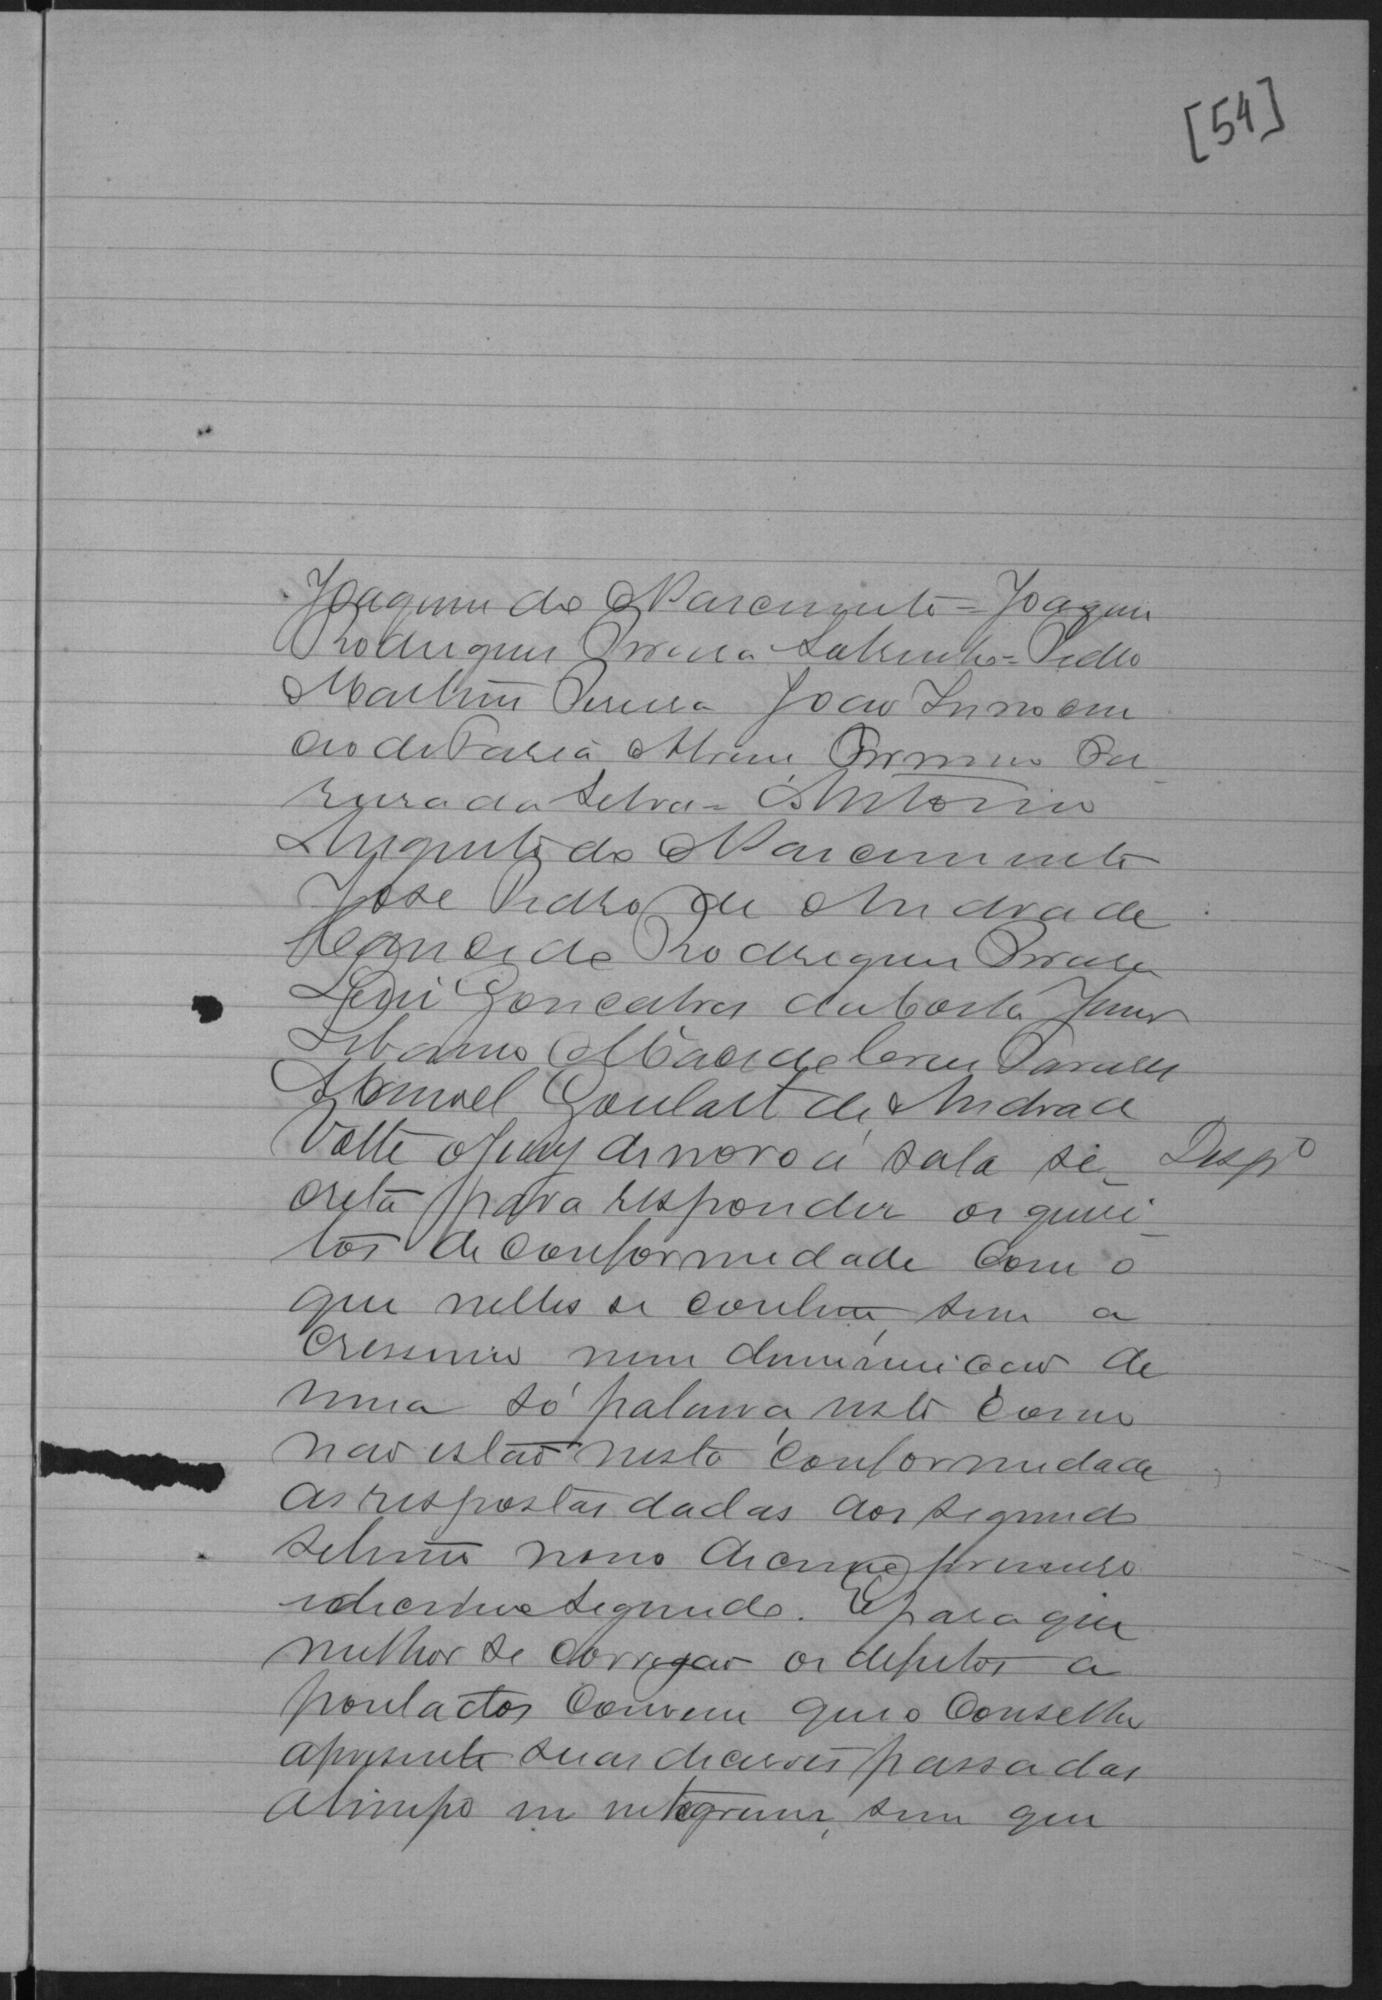 [54]
Joaquim do Nascimento = Joaquim
Rodrigues Correa Sobrinho = Pedro
Martins Pereira João Innocen
cio de Faria Firmino Pe
reira da Silva = Antonio
Augusto do Nascimento
José Pedro de Andrade
Rodrigues Correa
Gonçalves da Costa Junior
Urbano
Manoel Goulart de Andrade
Volte o jury de novo á sala se- Despº
creta para responder os quesi-
tos de conformidade com o
que nelles se contem, sem a
crescimo nem diminuicao de
uma só palavra, visto como
nao estão nesta conformidade
as respostas dadas aos segundo
setimo nono decimo primeiro
e decimo segundo. E para que
melhor se corrijao os defeitos a
pontados convem que o Conselho
apresente suas decisões passadas
a limpo na integra, sem que